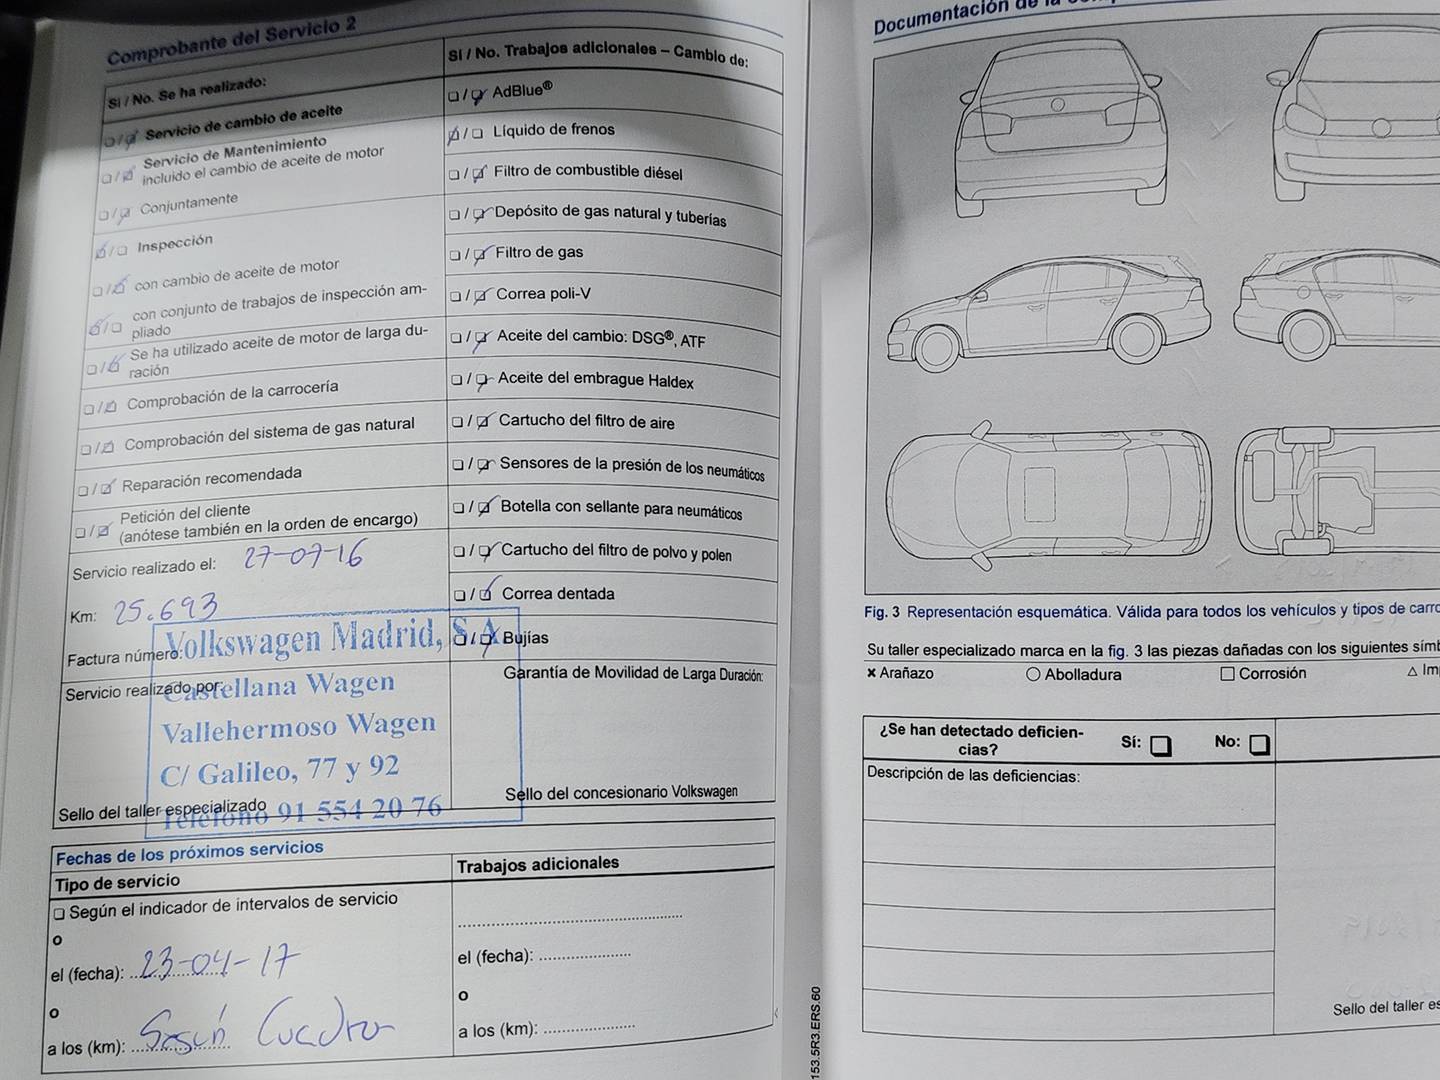 Comprobante del Servicio 2
Sí / No. Se ha realizado:
Servicio de cambio de aceite
Servicio de Mantenimiento
incluido el cambio de aceite de motor
Conjuntamente
Inspección
con cambio de aceite de motor
con conjunto de trabajos de inspección am-
pliado
Se ha utilizado aceite de motor de larga du-
ración
Comprobación de la carrocería
Comprobación del sistema de gas natural
Reparación recomendada
Petición del cliente
(anótese también en la orden de encargo)
Servicio realizado el: 27-07-16
Km: 25.693
Factura número:
Servicio realizado por:
Volkswagen Madrid, S.A.
Castellana Wagen
Vallehermoso Wagen
C/ Galileo, 77 y 92
Teléfono 91 554 20 76
Sello del taller especializado
Sí / No. Trabajos adicionales – Cambio de:
AdBlue®
Líquido de frenos
Filtro de combustible diésel
Depósito de gas natural y tuberías
Filtro de gas
Correa poli-V
Aceite del cambio: DSG®, ATF
Aceite del embrague Haldex
Cartucho del filtro de aire
Sensores de la presión de los neumáticos
Botella con sellante para neumáticos
Cartucho del filtro de polvo y polen
Correa dentada
Bujías
Garantía de Movilidad de Larga Duración:
Sello del concesionario Volkswagen
Fechas de los próximos servicios
Tipo de servicio
Según el indicador de intervalos de servicio
o
el (fecha): 23-04-17
o
a los (km): Según Cuadro
Trabajos adicionales
el (fecha):
o
a los (km):
153.5R3.ERS.60
Documentación de la
Fig. 3 Representación esquemática. Válida para todos los vehículos y tipos de carro
Su taller especializado marca en la fig. 3 las piezas dañadas con los siguientes símb
× Arañazo ○ Abolladura □ Corrosión △ Im
¿Se han detectado deficien-
cias?
Sí: No:
Descripción de las deficiencias:
Sello del taller es